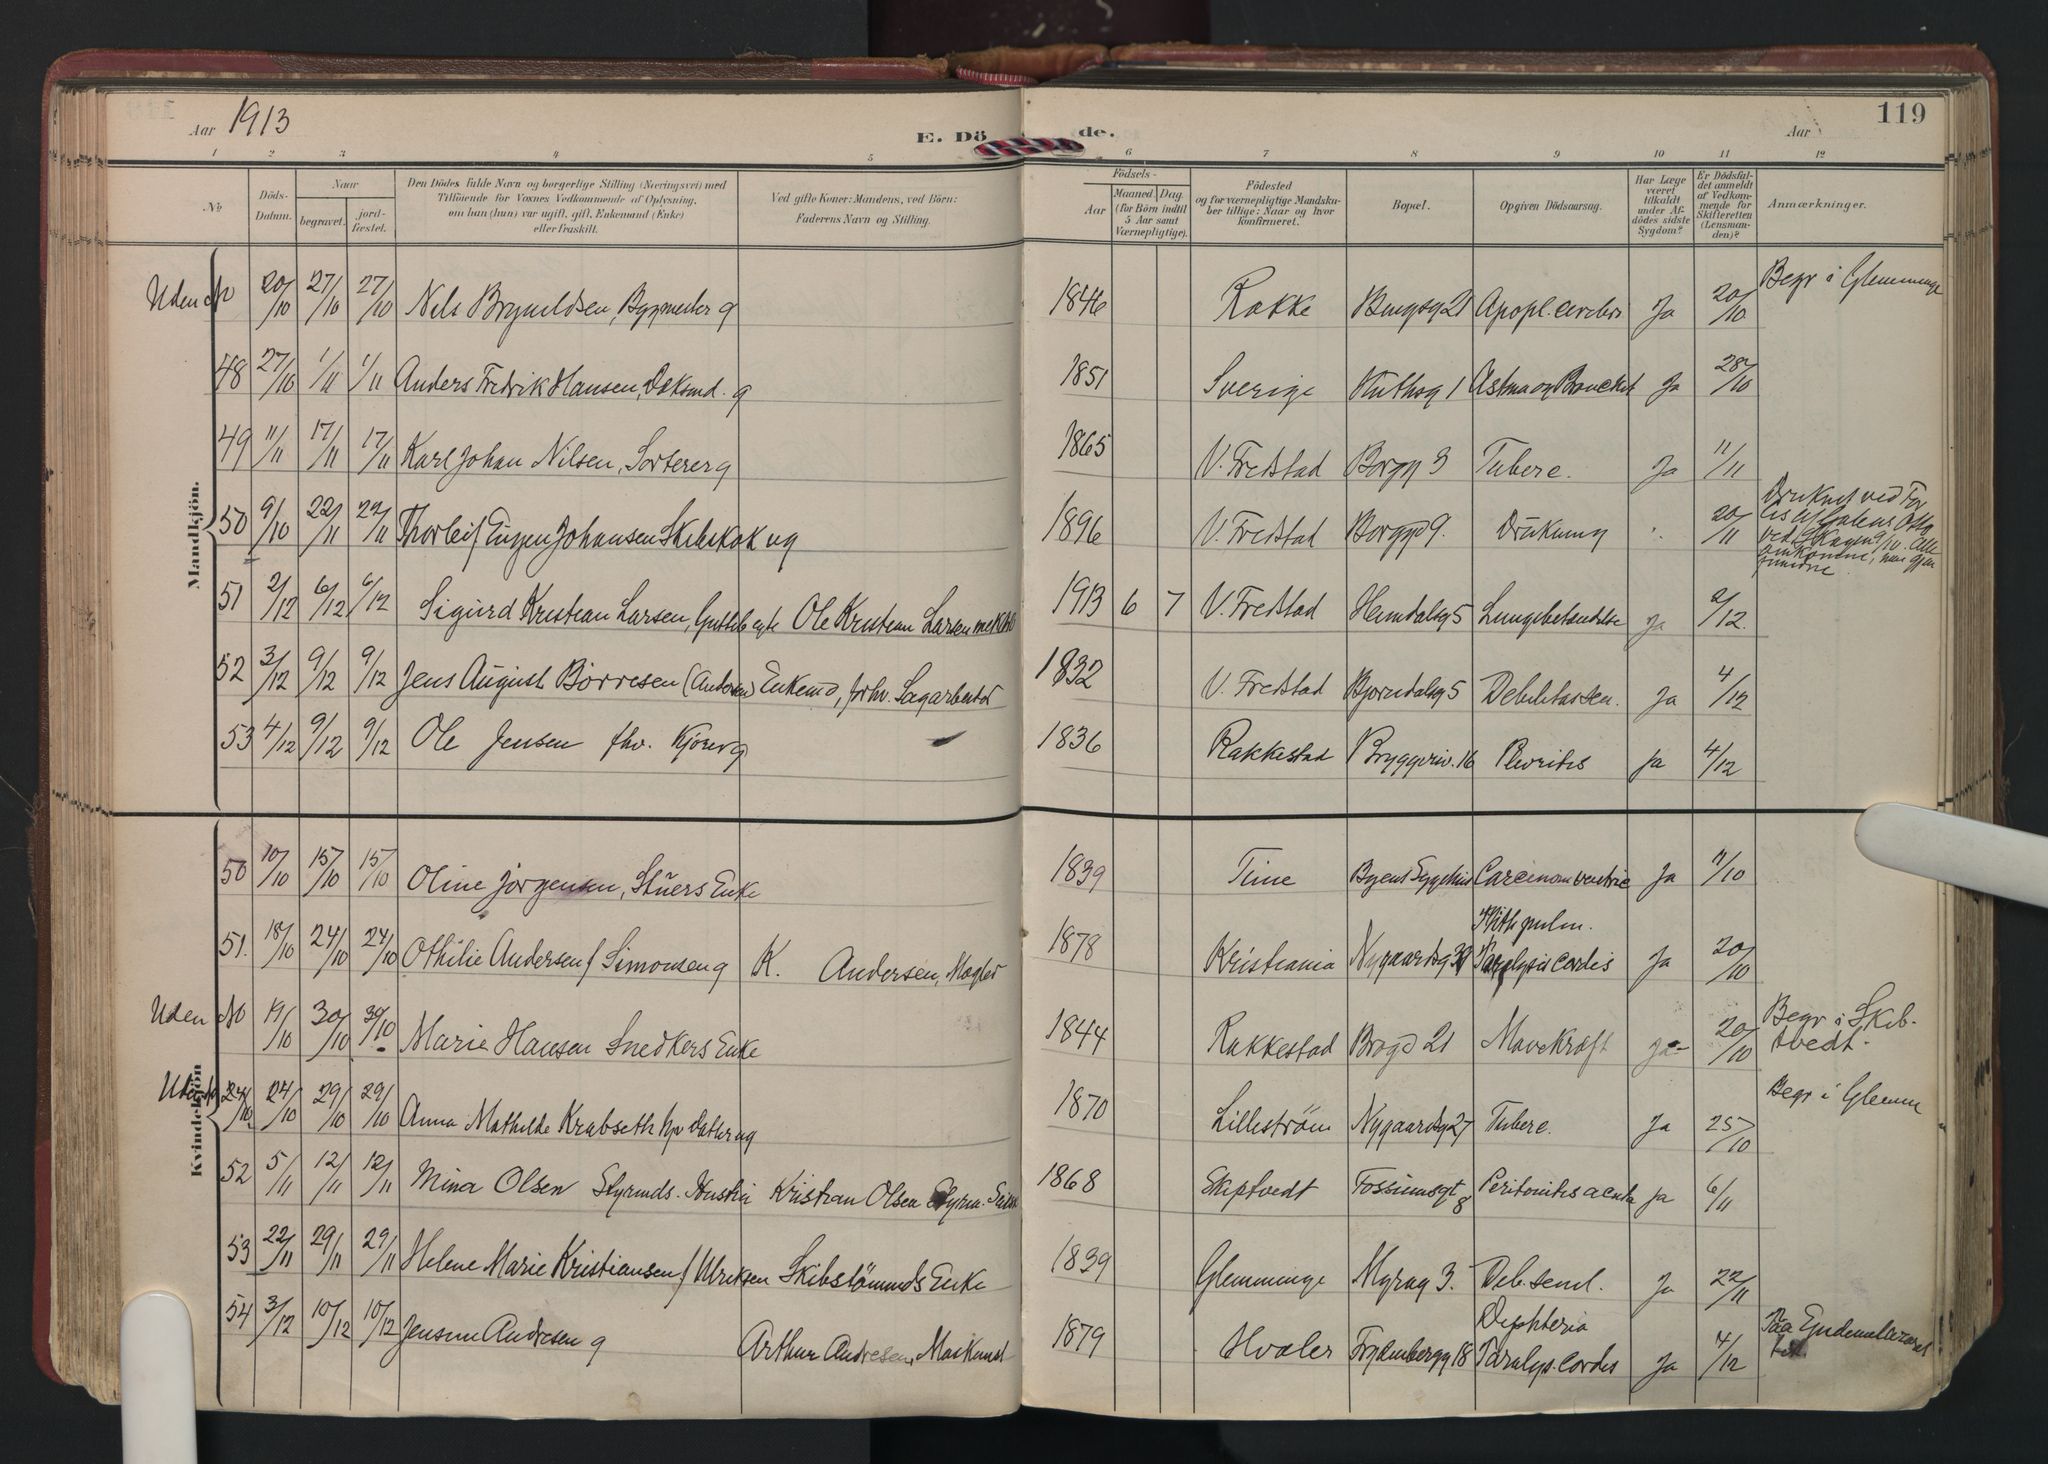 Aar 1913
E. Dö de.
Aar
119
1 2 3 4 5 6 7 8 9 10 11 12
No
Döds-Datum.
Naar
begravet.
jord-fæstet.
Den Dödes fulde Navn og borgerlige Stilling (Næringsvei) med
Tilföiende for Voxnes Vedkommende af Oplysning,
om han (hun) var ugift, gift, Enkemand (Enke)
eller fraskilt.
Ved gifte Koner: Mandens, ved Börn:
Faderens Navn og Stilling.
Födsels-
Aar
Maaned. Dag.
(for Börn indtil
5 Aar samt
Værnepligtige).
Födested
og for værnepligtige Mandskaber tillige: Naar og hvor
konfirmeret.
Bopæl.
Opgiven Dödsaarsag.
Har Læge
været
tilkaldt
under Afdödes sidste
Sygdom?
Er Dödsfaldet anmeldt
af Vedkommende for
Skifteretten
(Lensmanden)?
Anmærkninger.
Mandkjön.
Uden No 20/10 27/10 27/10 Nels Brynildsen, Bygmester g 1846 Rakke 21 Apopl. cerebri Ja 20/10 Begr i Glemminge
48 27/10 1/11 1/11 Anders Fredrik Hansen, g 1851 Sverige 1 Astma og Ja 28/10
49 11/11 17/11 17/11 Karl Johan Nilsen, Sorterer g 1865 V. Fredstad 3 Tuberc. Ja 11/11
50 9/10 22/11 22/11 Thorleif Eugen Johansen Skibskok ug 1896 V. Fredstad 9. Drukning 20/11 Druknet ved
ved Skagen 9/10. Alle
omkomne,
51 2/12 6/12 6/12 Sigurd Kristian Larsen, Ole Kristian Larsen 1913 6 7 V. Fredstad Hemdalsg 5 Lungebetændelse Ja 2/12.
52 3/12 9/12 9/12 Jens August Börresen (Andersen) Enkemd, forhv. Sagarbeider 1832 V. Fredstad Bjorndalsg 5 Ja 4/12
53 4/12 9/12 9/12 Ole Jensen fhv. g 1836 Rakkestad Bryggeriv. 16 Plevritis Ja 4/12
Kvindekjön
50 10/10 15/10 15/10 Oline Jörgensen, Stuers Enke 1839 Tune Byens Carcinom ventric Ja /10
51. 18/10 24/10 24/10 Othilie Andersen f Simonsen g K. Andersen, Mægler 1878 Kristiania Nygaardsg pulm.
Paralysis cordis Ja 20/10
Uden No 19/10 30/10 30/10 Marie Hansen Snedkers Enke 1844 Rakkestad 21 Mavekræft Ja 20/10 Begr i Skib-
tvedt.
Uden No 24/10 24/10 29/10 29/10 Anna Mathilde Krabseth ug 1870 Lilleström Nygaardsg 27 Tuberc. Ja 25/10 Begr i Glemm
52 5/11 12/11 12/11 Mina Olsen Styrmds. Hustru Kristian Olsen 1868 Skiptvedt Fossumsgt 8 Peritonitis acuta Ja 6/11
53 22/11 29/11 29/11 Helene Marie Kristiansen f Ulriksen Skibstömmds Enke 1839 Glemminge Myrag 3. Deb. senil. Ja 22/11
54 3/12 10/12 10/12 Andresen g Arthur Andresen, 1879 Hvaler Frydenbergg 18 Diphteria
Paralys. Cordis Ja 4/12 Paa